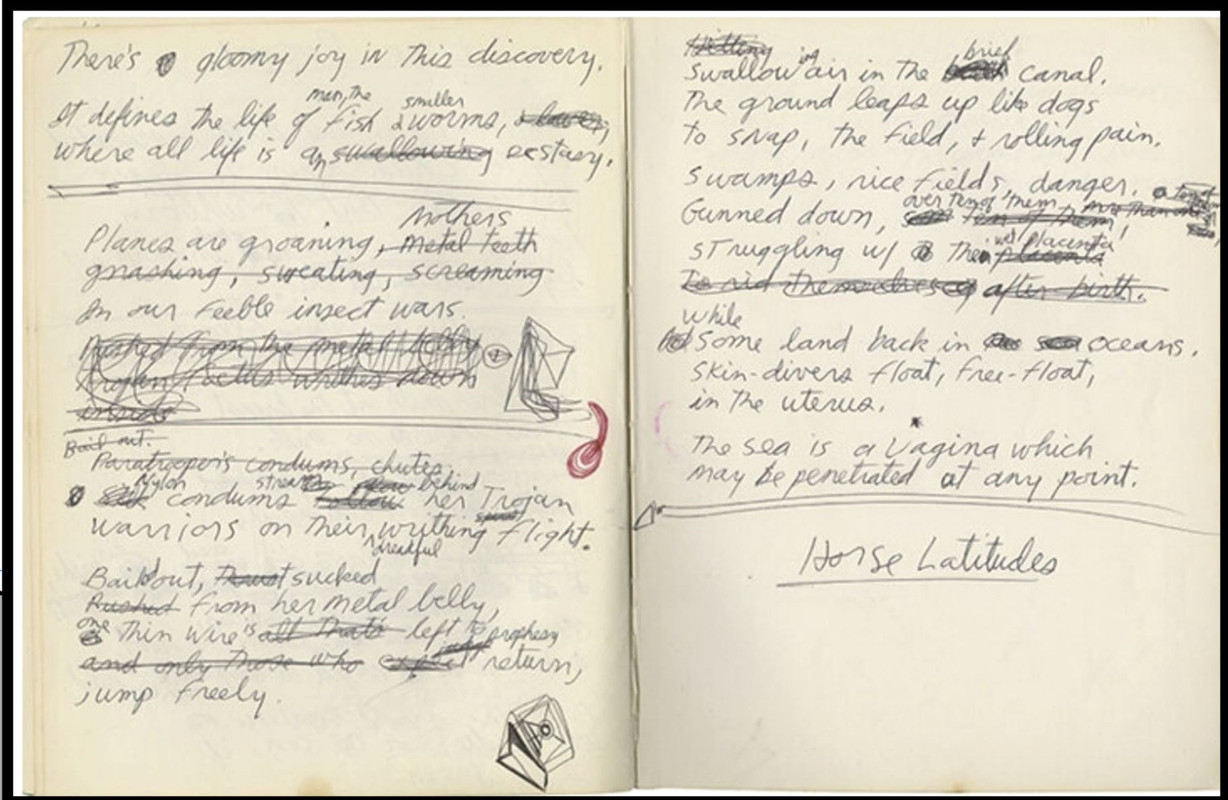 There's gloomy joy in this discovery.
man, the smiller
It defines the life of fish & worms, & lower,
where all life is an swallowing ecstasy.
Mothers
Planes are groaning, metal teeth
gnashing, sweating, screaming
In our feeble insect wars.
Rushed from the metal belly
trojan foetus writhes down
inside
Bail out.
Paratrooper's condums, chutes,
Nylon stream behind
condums follow her Trojan
warriors on their writhing flight.
dreadful
Bail'd out, Thrust sucked
Rushed from her metal belly,
one is to prophesy
Thin wire all that's left
and only those who expect return,
jump freely.
Hitting brief
swallowing air in the canal.
The ground leaps up like dogs
to snap, the field, + rolling pain.
Swamps, rice fields, danger.
over ten of them more than
Gunned down, ten of them,
wet placenta
struggling w/ their placenta
To rid themselves of after-birth.
while
Some land back in oceans.
Skin-divers float, free-float,
in the uterus.
The sea is a vagina which
may be penetrated at any point.
Horse Latitudes